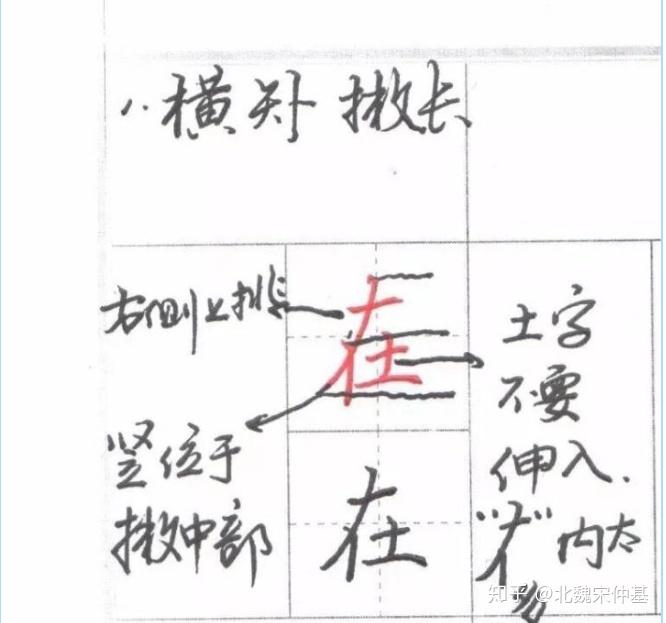 1. 横短 撇长
右侧上排
在
竖位于
撇中部
在
土字
不要
伸入.
内太
多
知乎 @北魏宋仲基